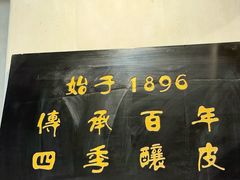 始于1896
傳承百年
四季釀皮